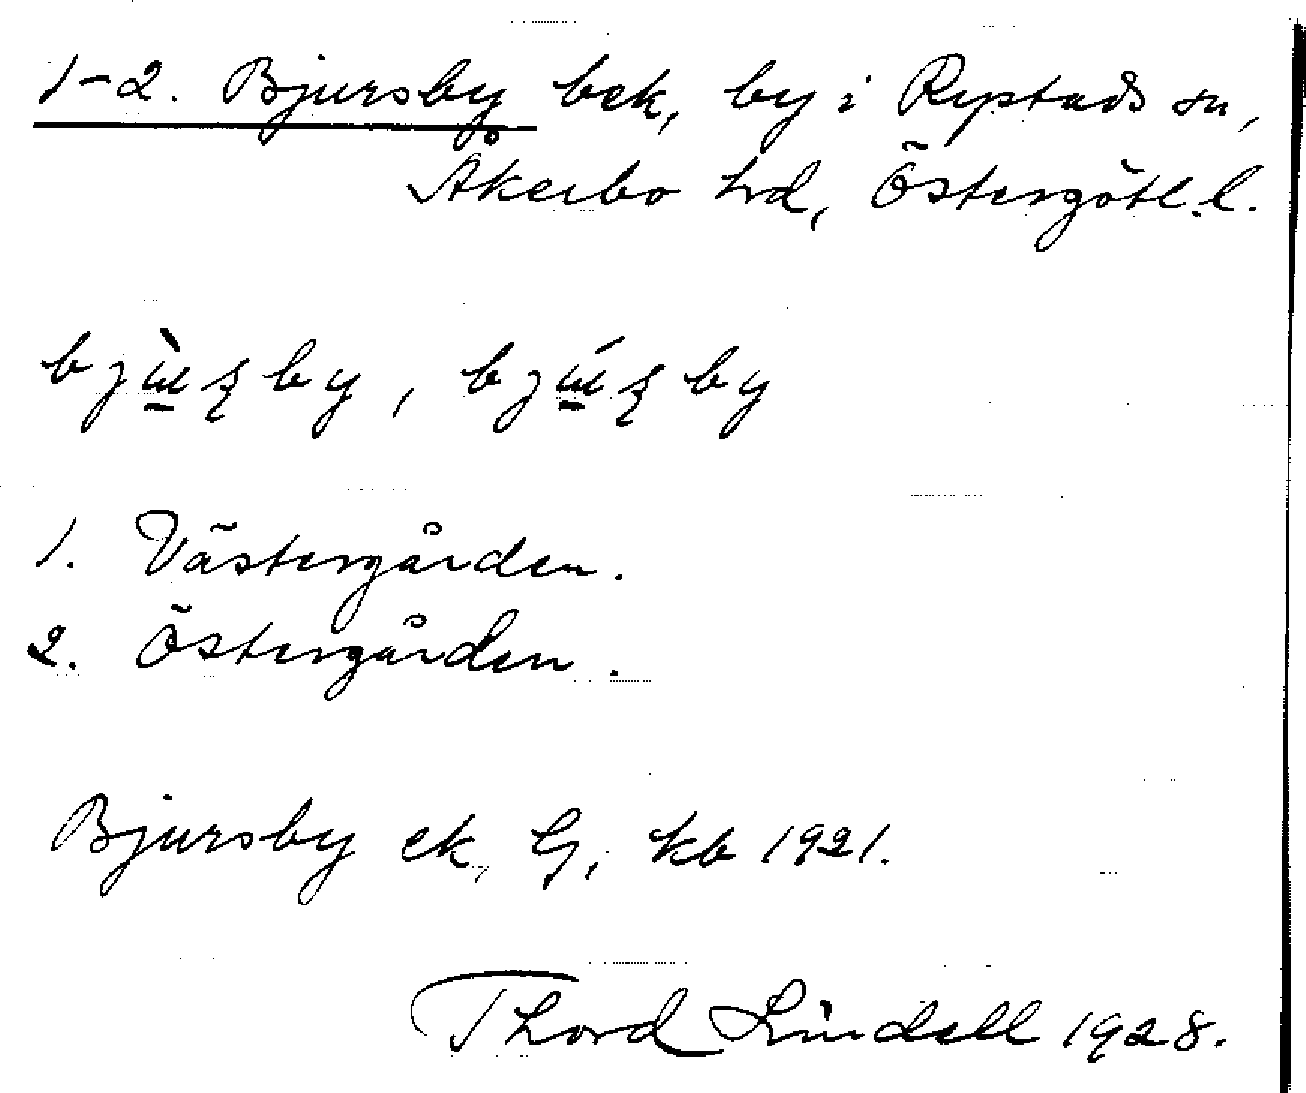 1-2. Bjursby bek, by i Rystads sn,
Åkerbo hd, Östergötl. l.
1. Västergården.
2. Östergården.
Bjursby ek, G, kb 1921.
Thord Lindell 1928.